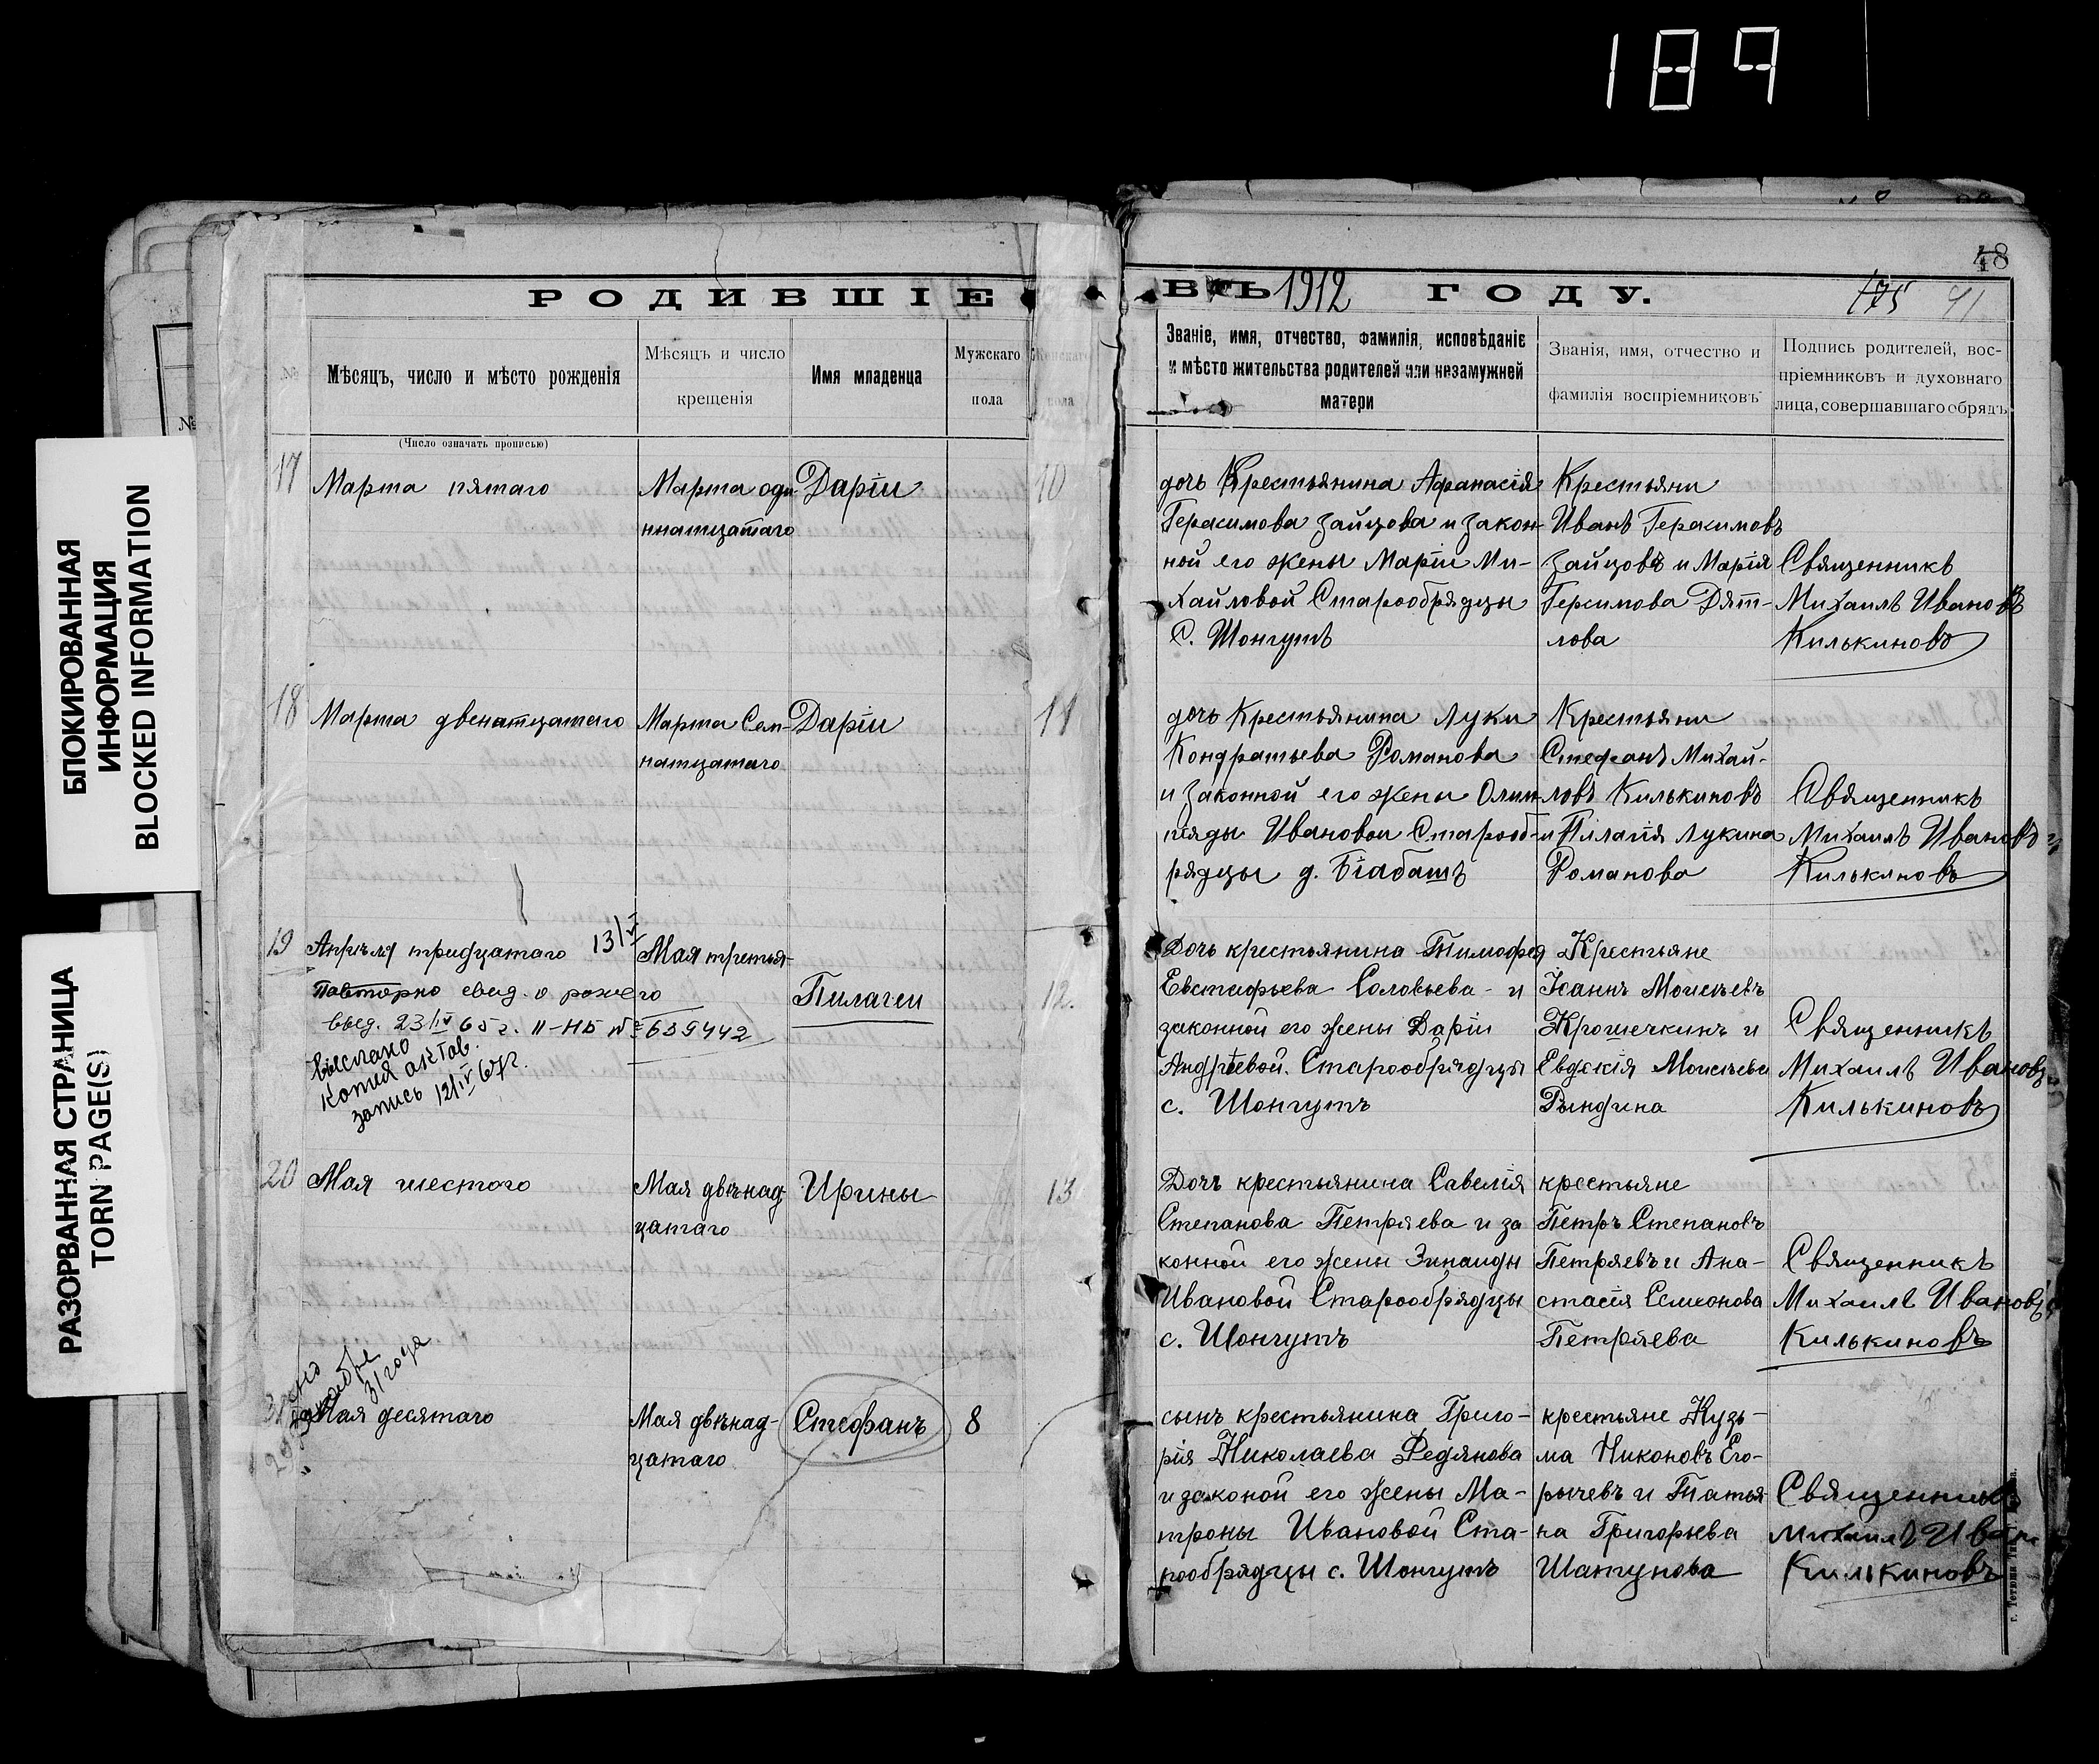 189
БЛОКИРОВАННАЯ
ИНФОРМАЦИЯ
BLOCKED INFORMATION
РАЗОРВАННАЯ СТРАНИЦА
TORN PAGE(S)
48
РОДИВШІЕ
ВЪ 1912 ГОДУ.
175 91
№
Мѣсяцъ, число и мѣсто рожденія
(Число означать прописью)
Мѣсяцъ и число
крещенія
Имя младенца
Мужскаго
пола
Женскаго
пола
Званіе, имя, отчество, фамилія, исповѣданіе
и мѣсто жительства родителей или незамужней
матери
Званія, имя, отчество и
фамилія воспріемниковъ
Подпись родителей, вос-
пріемниковъ и духовнаго
лица, совершавшаго обрядъ
17
Марта пятаго
Марта оди
ннатцатаго
Даріи
10
дочь Крестьянина Афанасія
Герасимова Зайцова и закон-
ной его жены Маріи Ми-
хайловой Старообрядцы
С. Шонгутъ
Крестьяни
Иванъ Герасимовъ
Зайцовъ и Марія
Герсимова Дят-
лова
Священникъ
Михаилъ Ивановъ
Килькиновъ
18
Марта двенатцатаго
Марта Сем-
натцатаго
Даріи
11
дочь Крестьянина Луки
Кондратьева Романова
и Законной его жены Олим-
піяды Ивановои Старооб-
рядцы д. Біабашъ
Крестьяни
Стефанъ Михай-
ловъ Килькиновъ
и Пилагія Лукина
Романова
Священникъ
Михаилъ Ивановъ
Килькиновъ
19
Апрѣля тридцатаго 13/V
Повторно свид. о рожд
выд. 23/IV 65 г. II-НБ № 639442
Выслано
копия актов.
запись 12/IV 67г.
Мая третья-
го
Пилагеи
12.
Дочь крестьянина Тимофея
Евстафьева Соловьева - и
законной его жены Даріи
Андрѣевой. Старообрядцы
с. Шонгутъ
Крестьяне
Іоаннъ Моисѣевъ
Крошечкинъ и
Евдокія Моисѣева
Рындина
Священникъ
Михаилъ Ивановъ
Килькиновъ
20
Мая шестого
Мая двѣнад-
цатаго
Ирины
13
Дочь крестьянина Савелія
Степанова Петряева и за
конной его жены Зинаиды
Ивановой Старообрядцы
с. Шонгутъ
крестьяне
Петръ Степановъ
Петряевъ и Ана-
стасія Семионова
Петряева
Священникъ
Михаилъ Ивановъ
Килькиновъ
31 года
Мая десятаго
Мая двѣнад-
цатаго
Стефанъ
8
сынъ крестьянина Григо-
рія Николаева Федянова
и законой его жены Ма-
троны Ивановой Ста-
рообрядцы с. Шонгутъ
крестьяне Кузь-
ма Никоновъ Его-
рычевъ и Татья-
на Григорьева
Шатунова
Священникъ
Михаилъ Иван
Килькиновъ